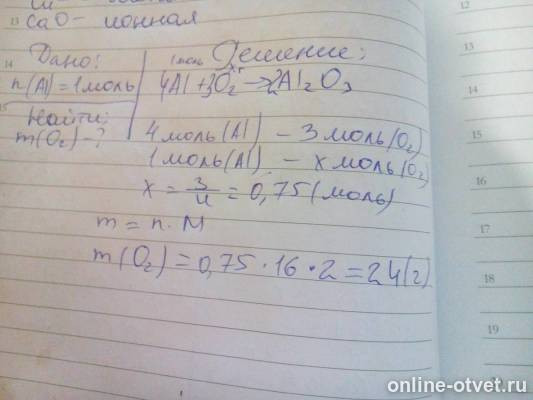 CaO - ионная
Дано:
Решение:
n(Al) = 1 моль
1 моль
4Al + 3O2 → 2Al2O3
Найти:
m(O2) - ?
4 моль (Al) - 3 моль (O2)
1 моль (Al) - x моль (O2)
x = 3/4 = 0,75 (моль)
m = n · M
m(O2) = 0,75 · 16 · 2 = 24 (г)
12
13
14
15
16
17
18
19
13
14
15
online-otvet.ru